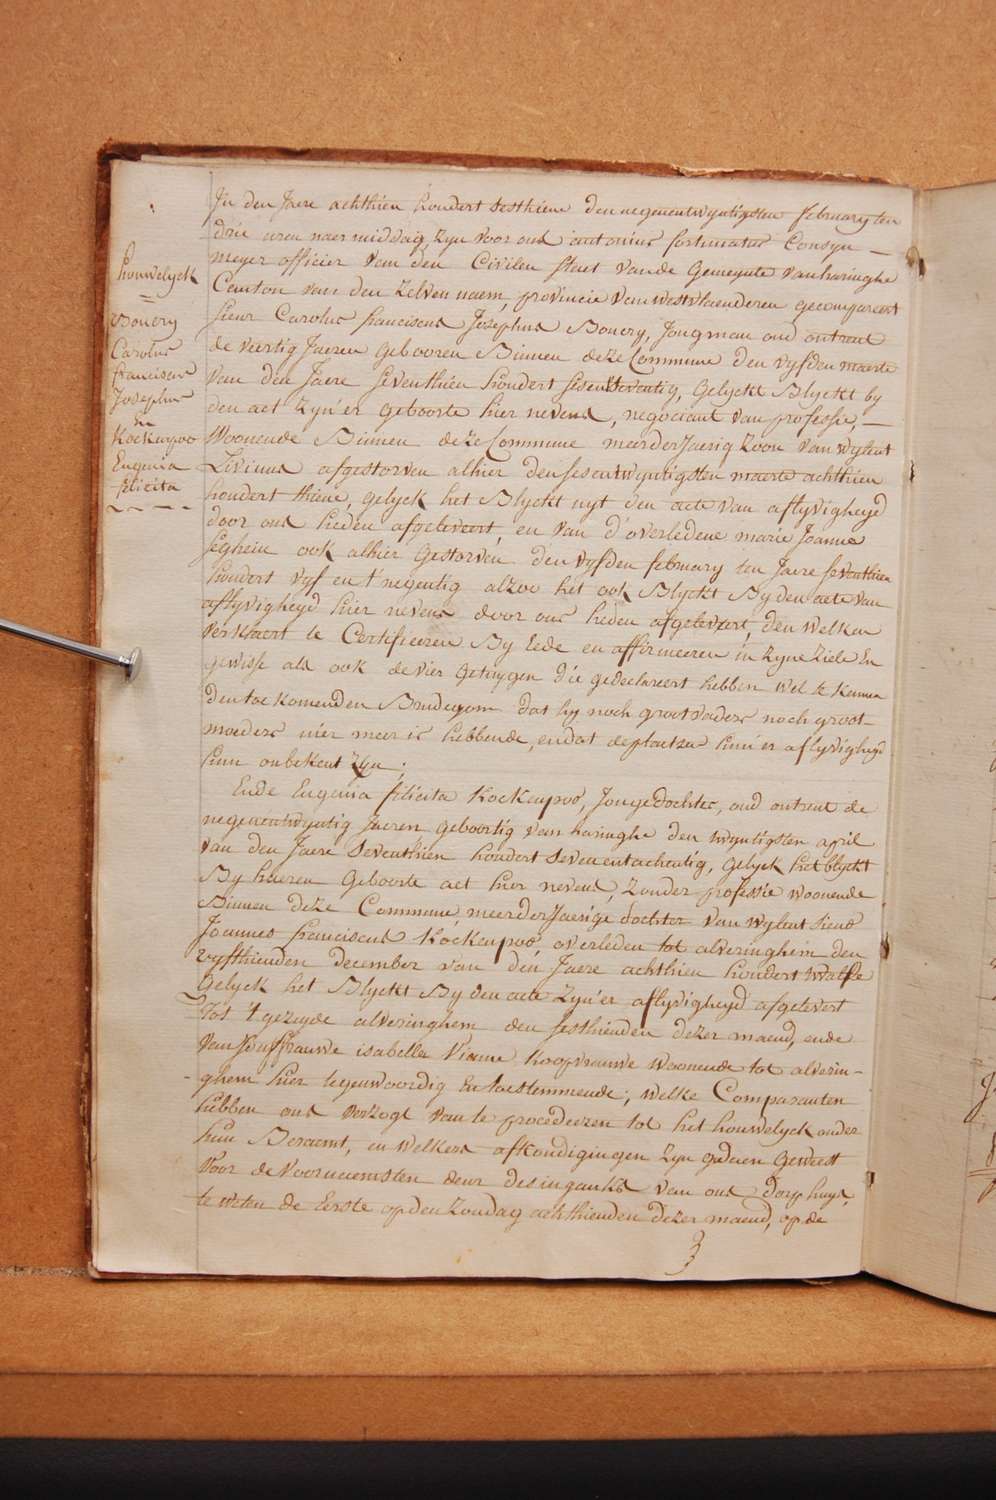 houwelyck
=
Bouery
Carolus
franciscus
Josephus
En
Kockenpoo
Eugenia
felicita
In den Jaere achthien hondert sesthiene den negenentwyntigsten february ten
drie uren naer middag, zyn voor ons antonius fortunatus Consyn —
meyer officier van den Civilen staet vande Gemeynte van haringhe
Canton van den zelven naem, provincie van westvlaenderen gecompareert
sieur Carolus franciscus Josephus Bouery, Jongman oud ontrent
de veertig Jaeren Gebooren Binnen deze Commune den vyfden maerte
van den Jaere seventhien hondert sesentseventig, Gelyckt Blyckt by
den act zyn'er Geboorte hier nevens, negociant van professie, —
Woonende Binnen deze Commune meerderJaerig zoon van wylent
Livinus afgestorven alhier den sesentwyntigsten maerte achthien
hondert thiene, gelyck het Blyckt uyt den acte van aflyvigheyd
door ons heden afgeleveert, en van d'overledene marie Joanne
seghein ook alhier Gestorven den vyfden february ten Jaere seventhien
hondert vyf en t'negentig alzoo het ook Blyckt By den acte van
aflyvigheyd hier nevens door ons heden afgelevert, den welken
verklaert te Certifieeren By Eede en affirmeeren in zyne Ziele En
gewisse als ook de vier getuygen die gedeclareert hebben wel te kennen
den toekomenden Brudegom dat hy noch grootvaders noch groot-
moeders nier meer is hebbende, en dat de plaetzen hun'er aflyvigheyd
hun onbekent zyn;
Ende Eugenia felicita Kockenpoo, Jongedochter, oud ontrent de
negenentwyntig Jaeren Geboortig van haringhe den twyntigsten april
van den Jaere seventhien hondert sevenentachentig, Gelyck het blyckt
By haeren Geboorte act hier nevens, zonder professie woonende
Binnen deze Commune, meerderJaerige dochter van wylent sieur
Joannes franciscus Kockenpoo, overleden tot alveringhem den
vyfthienden december van den Jaere achthien hondert twalfe
Gelyck het Blyckt By den acte zyn'er aflyvigheyd afgelevert
tot 't gezeyde alveringhem den sesthienden dezer maend, ende
van Jouffrauwe isabelle Vianne Koopvrauwe Woonende tot alverin-
ghem hier tegenwoordig En toestemmende; welke Comparanten
hebben ons verzogt van te procedeeren tot het houwelyck onder
hun Beraemt, en welkers afkondigingen zyn gedaen Geweest
voor de voornaemsten deur des inganks van ons dorphuys,
te weten de Eerste op den zondag achthienden dezer maend, op de
3